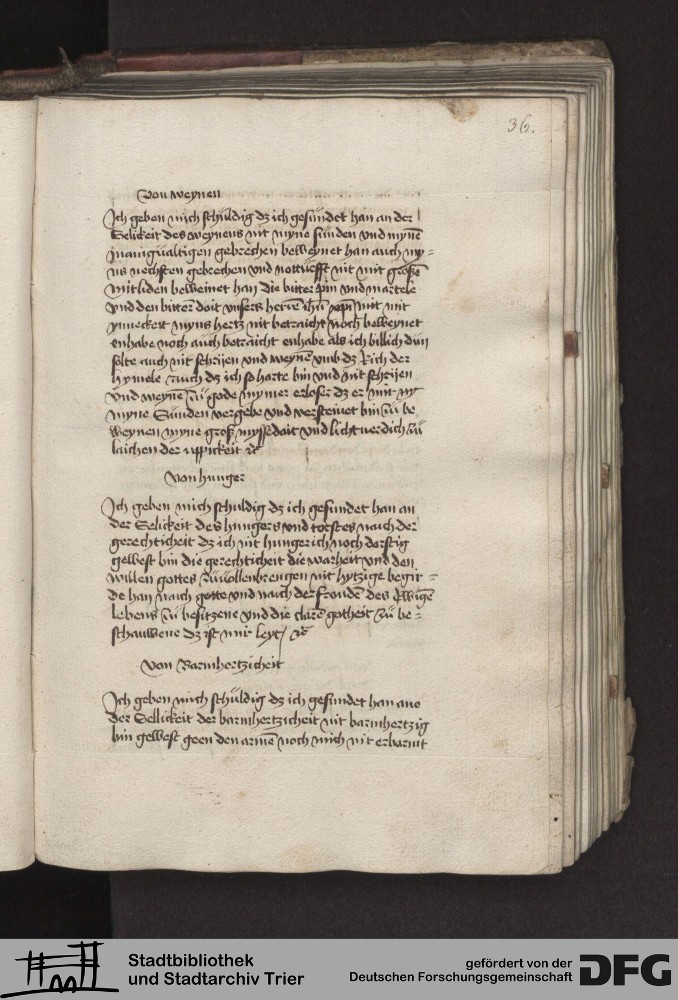 36.
Von weynen
Ich geben mich schuldig dz ich gesundet han an der
Selickeit des weynens nit myne sunden vnd mynē
manigualtigen gebrechen beweynet han auch my=
ns nechsten gebrechen vnd notturfft nit mit großē
mitliden beweinet han die bitter pin vnd martele
vnd den bitterē doit vnsers herrē ihū xpi mit mit
ynneckeit myns hertz nit betraicht noch beweynet
enhabe noch auch betraicht enhabe als ich billich dun
solte auch nit schrijen vnd weynē vmb dz Rich der
hymele auch dz ich so harte bin vnd nit schrijen
vnd weynē zu gode mynner erloser dz er mir
myne Sunden vergebe vnd versteinet bin zu be
weynen myne groß myssedait vnd licht verdich zu
laichen der uppickeit ꝛc
Von hunger
Ich geben mich schuldig dz ich gesundet han an
der Selickeit des hungers vnd torstes naich der
gerechticheit dz ich nit hungerich noch dorstig
gewest bin die gerechticheit die warheit vnd den
willen gottes zuuollenbrengen nit hytzige begir=
de han naich gotte vnd naich der freuden des Ewigē
lebens zu besitzene vnd die clare gotheit zu be=
schauwene dz ist mir leyt ꝛc
Von Barmhertzicheit
Ich geben mich schuldig dz ich gesundet han ane
der Sellickeit der barmhertzicheit nit barmhertzig
bin gewest geen den armē noch mich nit erbarmt
Stadtbibliothek
und Stadtarchiv Trier
gefördert von der
Deutschen Forschungsgemeinschaft
DFG